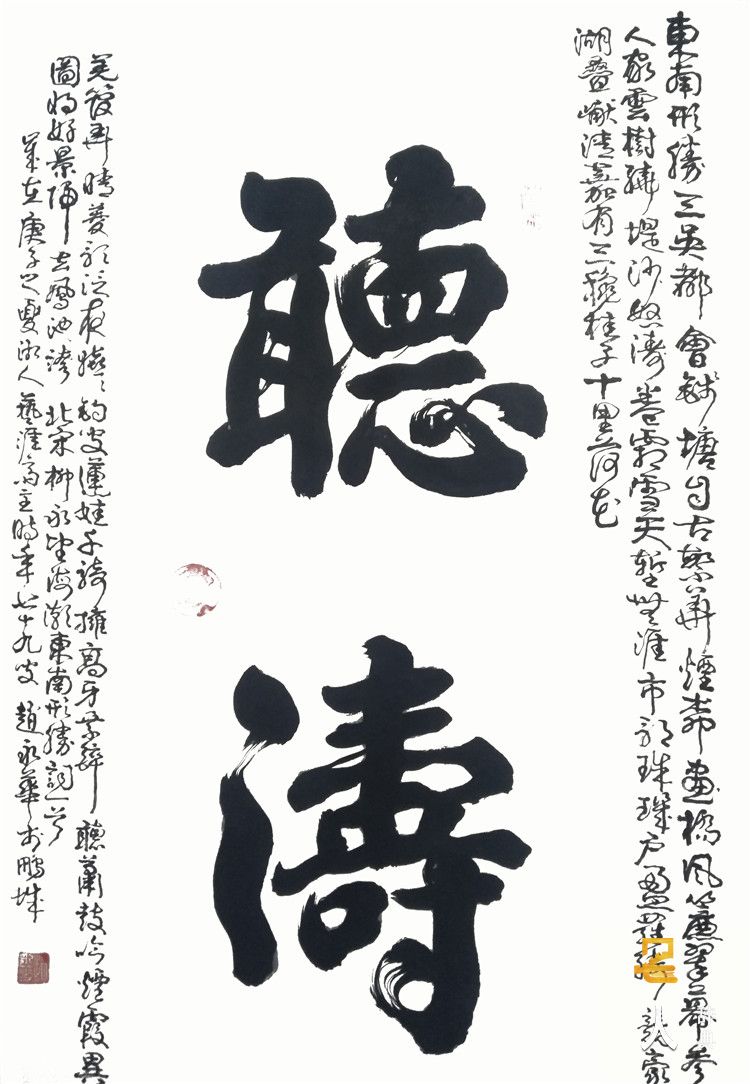 東南形勝三吳都會錢塘自古繁華煙柳畫橋風簾翠幕參
人家雲樹繞堤沙怒濤卷霜雪天塹無涯市列珠璣戶盈羅綺競豪
湖疊巘清嘉有三秋桂子十里荷花
聽濤
羌管弄晴菱歌泛夜嬉〻釣叟蓮娃千騎擁高牙乘醉聽簫鼓吟煙霞異
圖將好景歸去鳳池誇 北宋柳永望海潮東南形勝詞一首
歲在庚子之夏人藝涯齋主時年七十九叟趙永華於鵬城